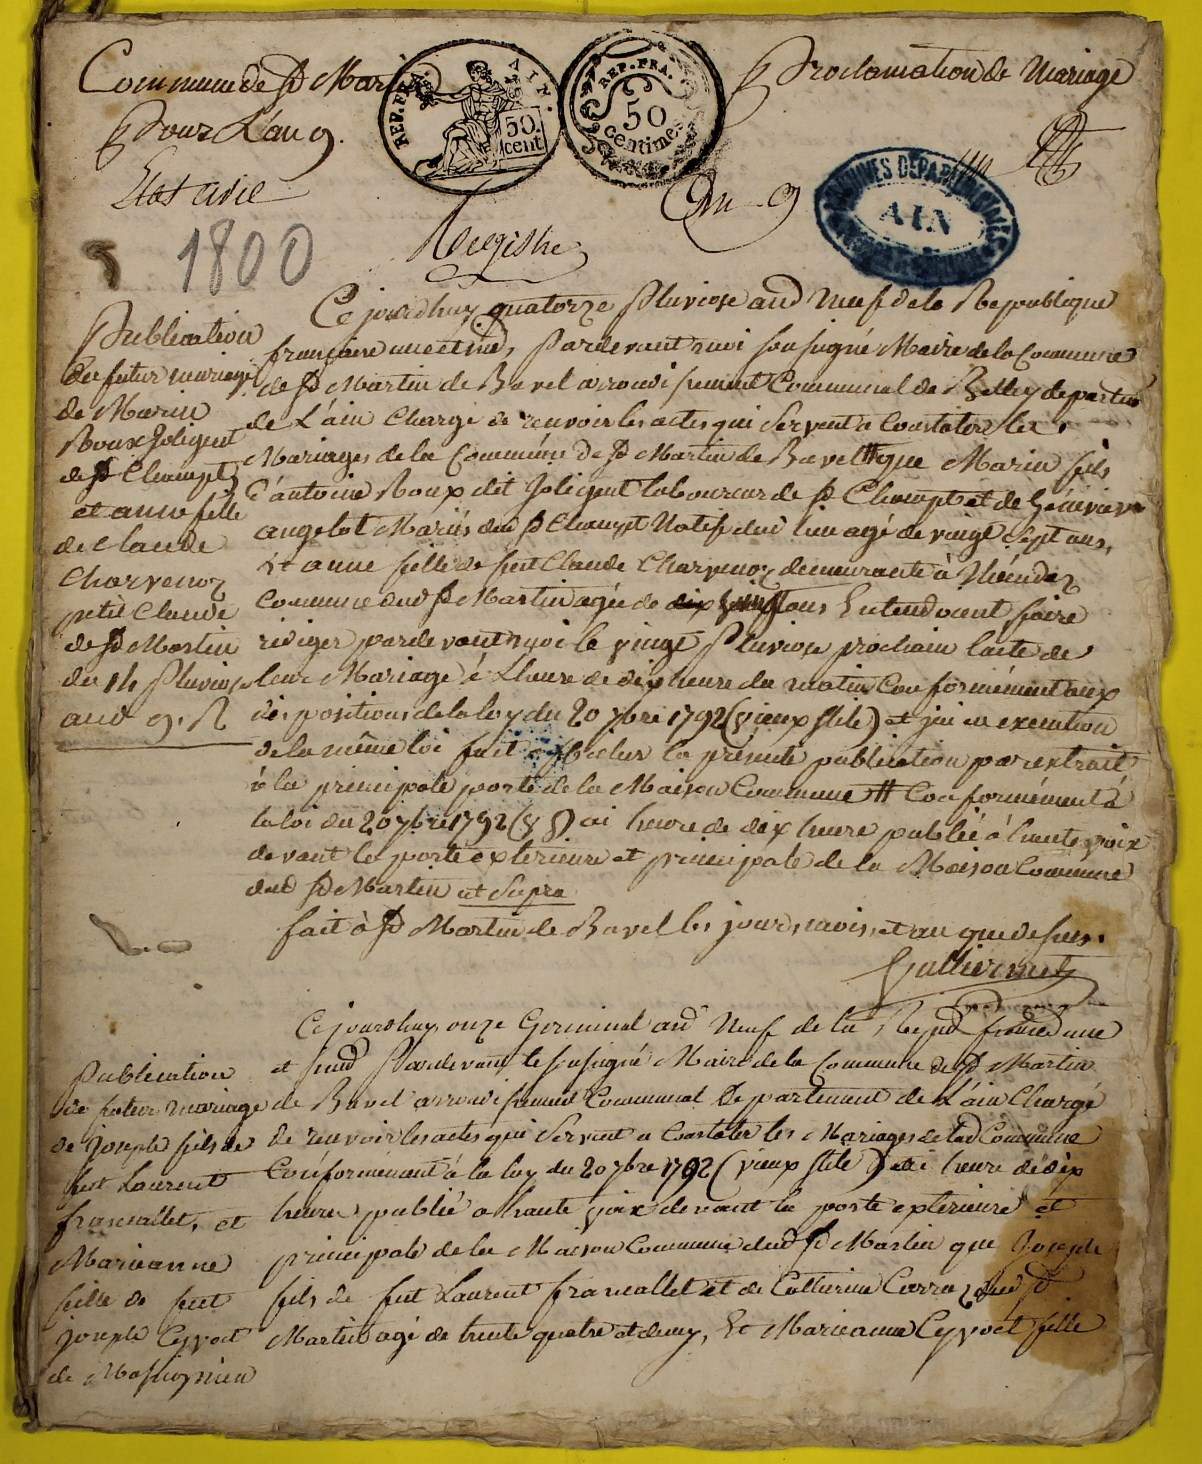 Commune de St Mar
Proclamation de Mariage
Pour L'an 9.
Etat civil
REP. FRA. AIN.
50 cent
REP. FRA.
50 centimes
An 9
ARCHIVES DEPARTEMENTALES
AIN
1800
Registre
Publication
du futur mariage
de Marin
Roux Joliguet
de St Champt
et anne fille
de Claude
Charvenoz
petit Claude
de St Martin
du 14 Pluviose
and 9. R
Ce jourdhuy quatorze Pluviose and Neuf de la Republique
francaise une et ind, Pardevant moi soussigné Maire de la Commune
de St Martin de Bavel arrondissement Communal de Belley departem
de L'ain Chargé de recevoir les actes qui servent a Constater les
Mariages de la Commune de St Martin de Bavel que Marin fils
d'antoine Roux dit Joliguet laboureur de St Champt et de Génévieve
angelot Mariés dud St Champt Natif dud lieu agé de vingt sept ans,
Et anne fille de feut Claude Charvenoz demeurante à
Commune dud St Martin agée de dix ans Entendoient faire
rédiger pardevant moi le vingt Pluviose prochain l'acte de
leur Mariage à Lheure de dix heure du matin Conformément aux
dispositions de la loy du 20 7bre 1792 (vieux stile) et jai en execution
de la même loi fait afficher la présente publication par extrait
à la principale porte de la Maison Commune # Conformément à
la loi du 20 7bre 1792 (v s) ai heure de dix heure publié à haute voix
devant la porte extérieure et principale de la Maison Commune
dud St Martin ut Supra
fait à St Martin de Bavel les jour, mois, et an que dessus.
Publication
de futur mariage
de Joseph fils de
feut Laurent
francallet, et
Marieanne
fille de feut
joseph Cyvoct
de Massignieu
Ce jourdhuy onze Germinal and Neuf de la Repud francd une
et indd Pardevant le soussigné Maire de la Commune de St Martin
de Bavel arrondissement Communal Departement de L'ain Chargé
de recevoir les actes qui servent a Constater les Mariages de lad Commune
Conformément à la loy du 20 7bre 1792 (vieux stile) ai heure de dix
heure publié a haute voix devant la porte extérieure et
principale de la Maison Commune dud St Martin que Joseph
fils de fut Laurent francallet et de Catherine Carraz dud St
Martin agé de trente quatre et demy, Et Marieanne Cyvoct fille